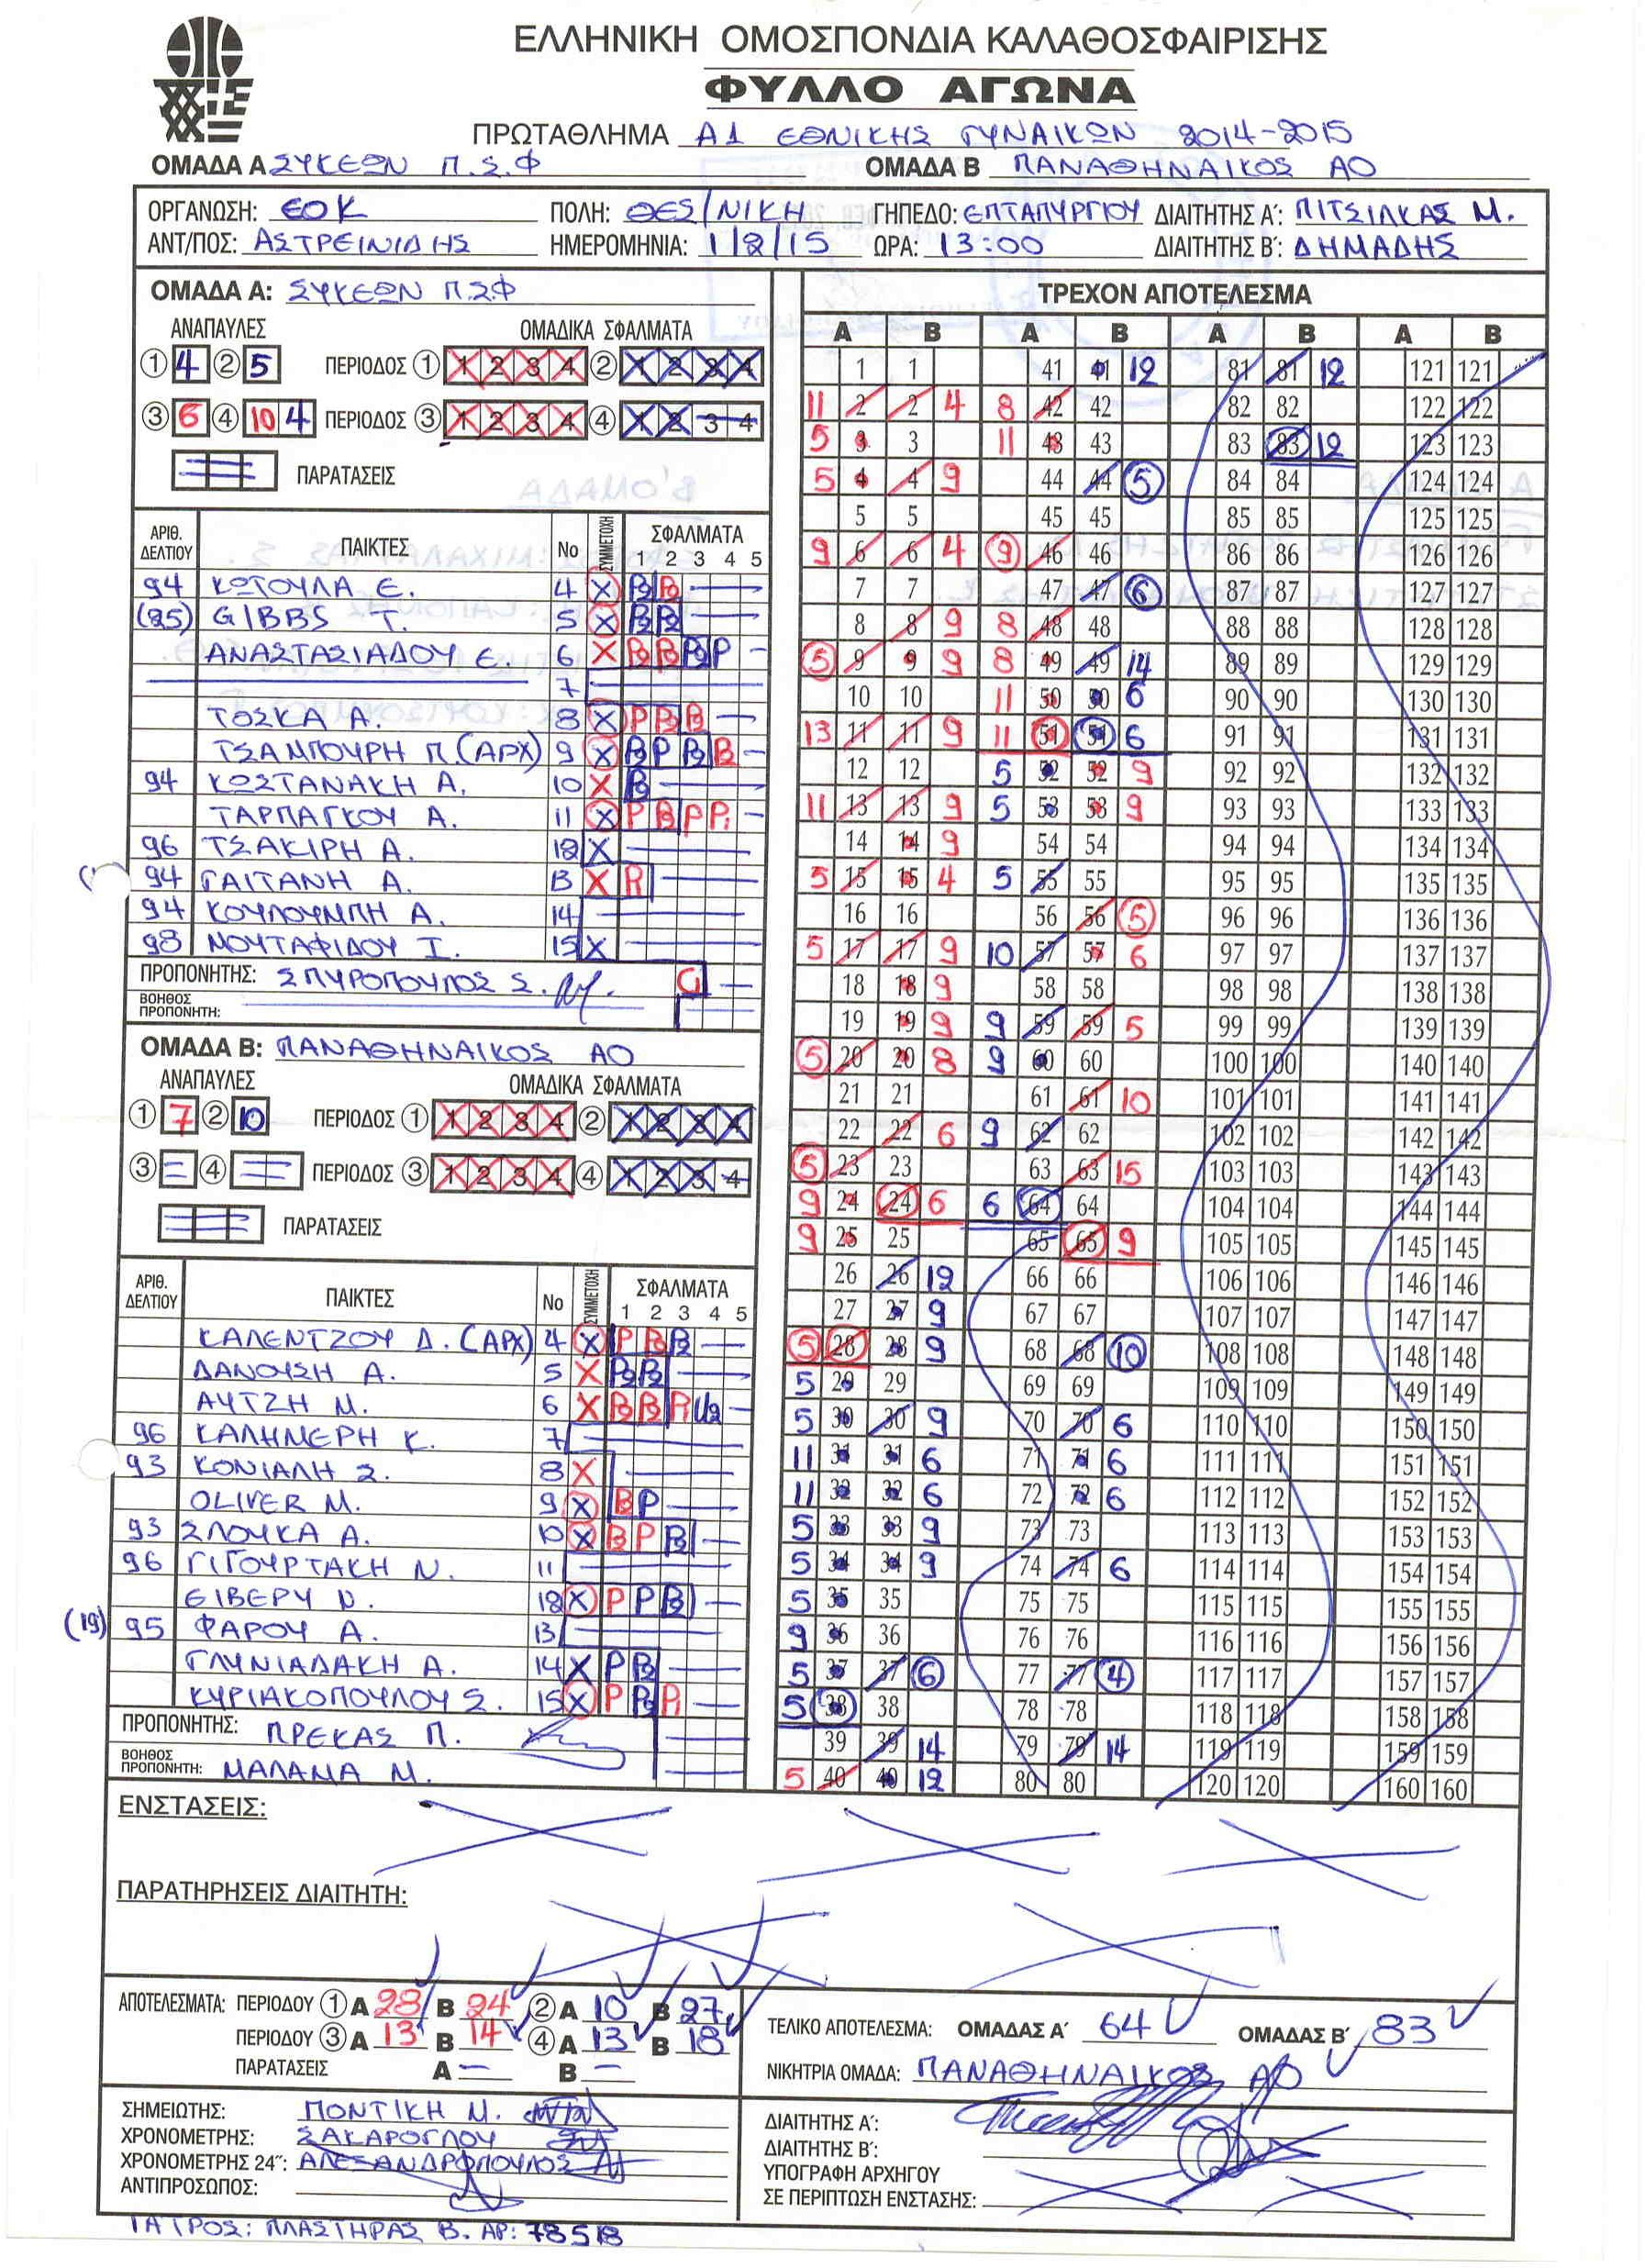 ΕΛΛΗΝΙΚΗ ΟΜΟΣΠΟΝΔΙΑ ΚΑΛΑΘΟΣΦΑΙΡΙΣΗΣ
ΦΥΛΛΟ ΑΓΩΝΑ
ΠΡΩΤΑΘΛΗΜΑ Α1 ΕΘΝΙΚΗΣ ΓΥΝΑΙΚΩΝ 2014-2015
ΟΜΑΔΑ Α ΣΥΚΕΩΝ Π.Σ.Φ ΟΜΑΔΑ Β ΠΑΝΑΘΗΝΑΙΚΟΣ ΑΟ
ΟΡΓΑΝΩΣΗ: ΕΟΚ ΠΟΛΗ: ΘΕΣ/ΝΙΚΗ ΓΗΠΕΔΟ: ΕΠΤΑΠΥΡΓΙΟΥ ΔΙΑΙΤΗΤΗΣ Α΄: ΠΙΤΣΙΛΚΑΣ Μ.
ΑΝΤ/ΠΟΣ: ΑΣΤΡΕΙΝΙΔΗΣ ΗΜΕΡΟΜΗΝΙΑ: 1/2/15 ΩΡΑ: 13:00 ΔΙΑΙΤΗΤΗΣ Β΄: ΔΗΜΑΔΗΣ
ΟΜΑΔΑ Α: ΣΥΚΕΩΝ ΠΣΦ
ΑΝΑΠΑΥΛΕΣ ΟΜΑΔΙΚΑ ΣΦΑΛΜΑΤΑ
1 4 2 5 ΠΕΡΙΟΔΟΣ 1 1 2 3 4 2 1 2 3 4
3 6 4 10 4 ΠΕΡΙΟΔΟΣ 3 1 2 3 4 4 1 2 3 4
ΠΑΡΑΤΑΣΕΙΣ
ΑΡΙΘ. ΔΕΛΤΙΟΥ ΠΑΙΚΤΕΣ Νο ΣΥΜΜΕΤΟΧΗ ΣΦΑΛΜΑΤΑ 1 2 3 4 5
94 ΚΩΤΟΥΛΑ Ε. 4 X P2 P2
(25) GIBBS T. 5 X P2 P2
ΑΝΑΣΤΑΣΙΑΔΟΥ Ε. 6 X P2 P2 P2 P
7
ΤΟΣΚΑ Α. 8 X P P2 P2
ΤΣΑΜΠΟΥΡΗ Π.(ΑΡΧ) 9 X P2 P P2 P2
94 ΚΩΣΤΑΝΑΚΗ Α. 10 X P2
ΤΑΡΠΑΓΚΟΥ Α. 11 X P P2 P P1
96 ΤΣΑΚΙΡΗ Α. 12 X
94 ΓΑΙΤΑΝΗ Α. 13 X P1
94 ΚΟΥΛΟΥΜΠΗ Α. 14
98 ΜΟΥΤΑΦΙΔΟΥ Ι. 15 X
ΠΡΟΠΟΝΗΤΗΣ: ΣΠΥΡΟΠΟΥΛΟΣ Σ. C1
ΒΟΗΘΟΣ ΠΡΟΠΟΝΗΤΗ:
ΟΜΑΔΑ Β: ΠΑΝΑΘΗΝΑΙΚΟΣ ΑΟ
ΑΝΑΠΑΥΛΕΣ ΟΜΑΔΙΚΑ ΣΦΑΛΜΑΤΑ
1 7 2 10 ΠΕΡΙΟΔΟΣ 1 1 2 3 4 2 1 2 3 4
3 4 ΠΕΡΙΟΔΟΣ 3 1 2 3 4 4 1 2 3 4
ΠΑΡΑΤΑΣΕΙΣ
ΑΡΙΘ. ΔΕΛΤΙΟΥ ΠΑΙΚΤΕΣ Νο ΣΥΜΜΕΤΟΧΗ ΣΦΑΛΜΑΤΑ 1 2 3 4 5
ΚΑΛΕΝΤΖΟΥ Δ. (ΑΡΧ) 4 X P P2 P2
ΔΑΝΟΥΣΗ Α. 5 X P2 P2
ΑΥΤΖΗ Μ. 6 X P2 P2 P1 U2
96 ΚΑΛΗΜΕΡΗ Κ. 7
93 ΚΟΝΙΑΛΗ Σ. 8 X
OLIVER M. 9 X P2 P
93 ΣΛΟΥΚΑ Α. 10 X P2 P P2
96 ΓΙΓΟΥΡΤΑΚΗ Ν. 11
ΕΙΒΕΡΥ Ν. 12 X P P P2
(19) 95 ΦΑΡΟΥ Α. 13
ΓΛΥΝΙΑΔΑΚΗ Α. 14 X P P2
ΚΥΡΙΑΚΟΠΟΥΛΟΥ Σ. 15 X P P2 P1
ΠΡΟΠΟΝΗΤΗΣ: ΠΡΕΚΑΣ Π.
ΒΟΗΘΟΣ ΠΡΟΠΟΝΗΤΗ: ΜΑΛΑΜΑ Μ.
ΤΡΕΧΟΝ ΑΠΟΤΕΛΕΣΜΑ
Α Β Α Β Α Β Α Β
1 1 41 41 12 81 81 12 121 121
11 2 2 4 8 42 42 82 82 122 122
5 3 3 11 43 43 83 83 12 123 123
5 4 4 9 44 44 5 84 84 124 124
5 5 45 45 85 85 125 125
9 6 6 4 9 46 46 86 86 126 126
7 7 47 47 6 87 87 127 127
8 8 9 8 48 48 88 88 128 128
5 9 9 9 8 49 49 14 89 89 129 129
10 10 11 50 50 6 90 90 130 130
13 11 11 9 11 51 51 6 91 91 131 131
12 12 5 52 52 9 92 92 132 132
11 13 13 9 5 53 53 9 93 93 133 133
14 14 9 54 54 94 94 134 134
5 15 15 4 5 55 55 95 95 135 135
16 16 56 56 5 96 96 136 136
5 17 17 9 10 57 57 6 97 97 137 137
18 18 9 58 58 98 98 138 138
19 19 9 9 59 59 5 99 99 139 139
5 20 20 8 9 60 60 100 100 140 140
21 21 61 61 10 101 101 141 141
22 22 6 9 62 62 102 102 142 142
5 23 23 63 63 15 103 103 143 143
9 24 24 6 6 64 64 104 104 144 144
9 25 25 65 65 9 105 105 145 145
26 26 12 66 66 106 106 146 146
27 27 9 67 67 107 107 147 147
5 28 28 9 68 68 10 108 108 148 148
5 29 29 69 69 109 109 149 149
5 30 30 9 70 70 6 110 110 150 150
11 31 31 6 71 71 6 111 111 151 151
11 32 32 6 72 72 6 112 112 152 152
5 33 33 9 73 73 113 113 153 153
5 34 34 9 74 74 6 114 114 154 154
5 35 35 75 75 115 115 155 155
9 36 36 76 76 116 116 156 156
5 37 37 6 77 77 4 117 117 157 157
5 38 38 78 78 118 118 158 158
39 39 14 79 79 14 119 119 159 159
5 40 40 12 80 80 120 120 160 160
ΕΝΣΤΑΣΕΙΣ:
ΠΑΡΑΤΗΡΗΣΕΙΣ ΔΙΑΙΤΗΤΗ:
ΑΠΟΤΕΛΕΣΜΑΤΑ: ΠΕΡΙΟΔΟΥ 1 Α 28 Β 24 2 Α 10 Β 27
ΠΕΡΙΟΔΟΥ 3 Α 13 Β 14 4 Α 13 Β 18
ΠΑΡΑΤΑΣΕΙΣ Α – Β –
ΤΕΛΙΚΟ ΑΠΟΤΕΛΕΣΜΑ: ΟΜΑΔΑΣ Α΄ 64 ΟΜΑΔΑΣ Β΄ 83
ΝΙΚΗΤΡΙΑ ΟΜΑΔΑ: ΠΑΝΑΘΗΝΑΙΚΟΣ ΑΟ
ΣΗΜΕΙΩΤΗΣ: ΠΟΝΤΙΚΗ Μ.
ΧΡΟΝΟΜΕΤΡΗΣ: ΣΑΚΑΡΟΓΛΟΥ
ΧΡΟΝΟΜΕΤΡΗΣ 24΄΄: ΑΛΕΞΑΝΔΡΟΠΟΥΛΟΣ
ΑΝΤΙΠΡΟΣΩΠΟΣ:
ΔΙΑΙΤΗΤΗΣ Α΄:
ΔΙΑΙΤΗΤΗΣ Β΄:
ΥΠΟΓΡΑΦΗ ΑΡΧΗΓΟΥ
ΣΕ ΠΕΡΙΠΤΩΣΗ ΕΝΣΤΑΣΗΣ:
ΙΑΤΡΟΣ: ΠΛΑΣΤΗΡΑΣ Β. ΑΡ: 78518